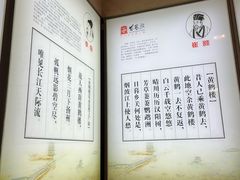 崔颢
黄鹤楼
昔人已乘黄鹤去，
此地空余黄鹤楼。
黄鹤一去不复返，
白云千载空悠悠。
晴川历历汉阳树，
芳草萋萋鹦鹉洲。
日暮乡关何处是，
烟波江上使人愁。
故人西辞黄鹤楼，
烟花三月下扬州。
孤帆远影碧空尽，
唯见长江天际流。